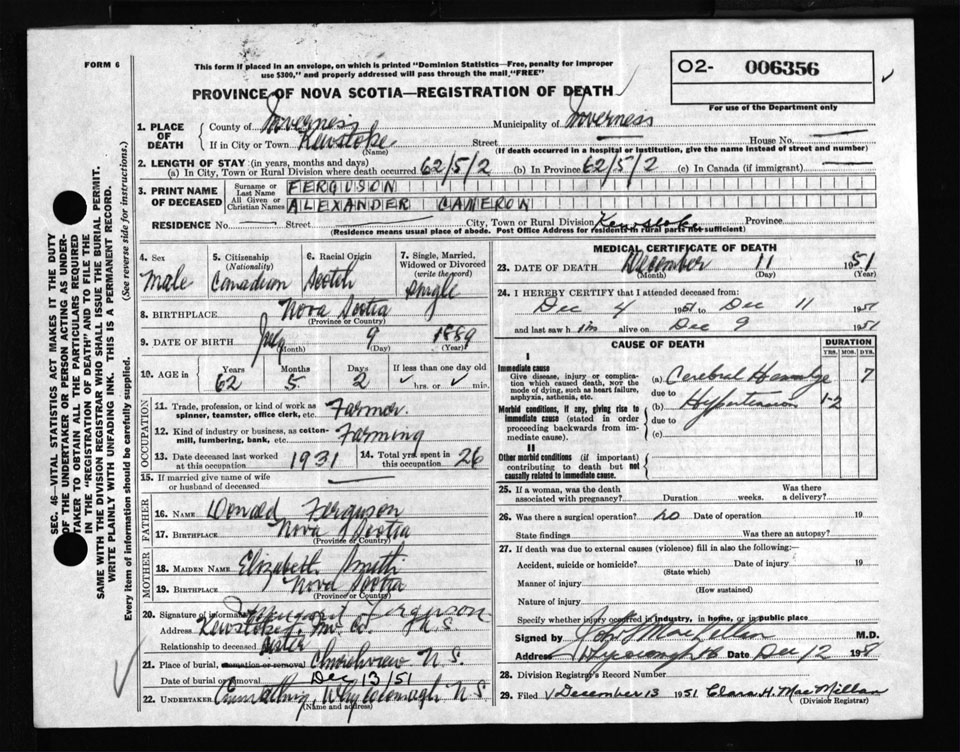 FORM 6
This form if placed in an envelope, on which is printed "Dominion Statistics—Free, penalty for improper
use $300," and properly addressed will pass through the mail "FREE"
O2- 006356
For use of the Department only
PROVINCE OF NOVA SCOTIA—REGISTRATION OF DEATH
SEC. 46—VITAL STATISTICS ACT MAKES IT THE DUTY
OF THE UNDERTAKER OR PERSON ACTING AS UNDER-
TAKER TO OBTAIN ALL THE PARTICULARS REQUIRED
IN THE "REGISTRATION OF DEATH" AND TO FILE THE
SAME WITH THE DIVISION REGISTRAR WHO SHALL ISSUE THE BURIAL PERMIT.
WRITE PLAINLY WITH UNFADING INK. THIS IS A PERMANENT RECORD.
Every item of information should be carefully supplied. (See reverse side for instructions.)
1. PLACE OF DEATH
County of Inverness Municipality of Inverness
If in City or Town Kewstoke Street — House No. —
(Name) (If death occurred in a hospital or institution, give the name instead of street and number)
2. LENGTH OF STAY (in years, months and days)
(a) In City, Town or Rural Division where death occurred 62/5/2 (b) In Province 62/5/2 (c) In Canada (if immigrant) —
3. PRINT NAME OF DECEASED
Surname or Last Name FERGUSON
All Given or Christian Names ALEXANDER CAMERON
RESIDENCE No. — Street City, Town or Rural Division Kewstoke Province
(Residence means usual place of abode. Post Office Address for residents in rural parts not sufficient)
4. Sex Male
5. Citizenship (Nationality) Canadian
6. Racial Origin Scotch
7. Single, Married, Widowed or Divorced (write the word) Single
8. BIRTHPLACE Nova Scotia
(Province or Country)
9. DATE OF BIRTH July 9 1889
(Month) (Day) (Year)
10. AGE in Years 62 Months 5 Days 2 If less than one day old hrs. or min.
OCCUPATION
11. Trade, profession, or kind of work as spinner, teamster, office clerk, etc. Farmer.
12. Kind of industry or business, as cotton-mill, lumbering, bank, etc. Farming
13. Date deceased last worked at this occupation 1931 14. Total yrs. spent in this occupation 26
15. If married give name of wife or husband of deceased —
FATHER
16. NAME Donald Ferguson
17. BIRTHPLACE Nova Scotia
(Province or Country)
MOTHER
18. MAIDEN NAME Elizabeth Smith
19. BIRTHPLACE Nova Scotia
(Province or Country)
20. Signature of informant Margaret Ferguson
Address Kewstoke, Inv. Co. N.S
Relationship to deceased Sister
21. Place of burial, cremation or removal Churchview N.S.
Date of burial or removal Dec 13/51
22. UNDERTAKER Whycocomagh N S
(Name and address)
MEDICAL CERTIFICATE OF DEATH
23. DATE OF DEATH December 11 1951
(Month) (Day) (Year)
24. I HEREBY CERTIFY that I attended deceased from:
Dec 4 1951 to Dec 11 1951
and last saw h im alive on Dec 9 1951
CAUSE OF DEATH
DURATION
YRS. MOS. DYS.
I
Immediate cause
Give disease, injury or complication which caused death, NOT the mode of dying, such as heart failure, asphyxia, asthenia, etc.
(a) Cerebral 7
due to
Morbid conditions, if any, giving rise to immediate cause (stated in order proceeding backwards from immediate cause).
(b) Hypertension 1-2
due to
(c)
II
Other morbid conditions (if important) contributing to death but not causally related to immediate cause.
25. If a woman, was the death associated with pregnancy? Duration weeks. Was there a delivery?
26. Was there a surgical operation? no Date of operation 19
State findings Was there an autopsy?
27. If death was due to external causes (violence) fill in also the following:
Accident, suicide or homicide? Date of injury 19
(State which)
Manner of injury
(How sustained)
Nature of injury
Specify whether injury occurred in industry, in home, or in public place
Signed by MacLellan M.D.
Address Date Dec 12 19
28. Division Registrar's Record Number
29. Filed December 13 1951 Clara H. MacMillan
(Division Registrar)